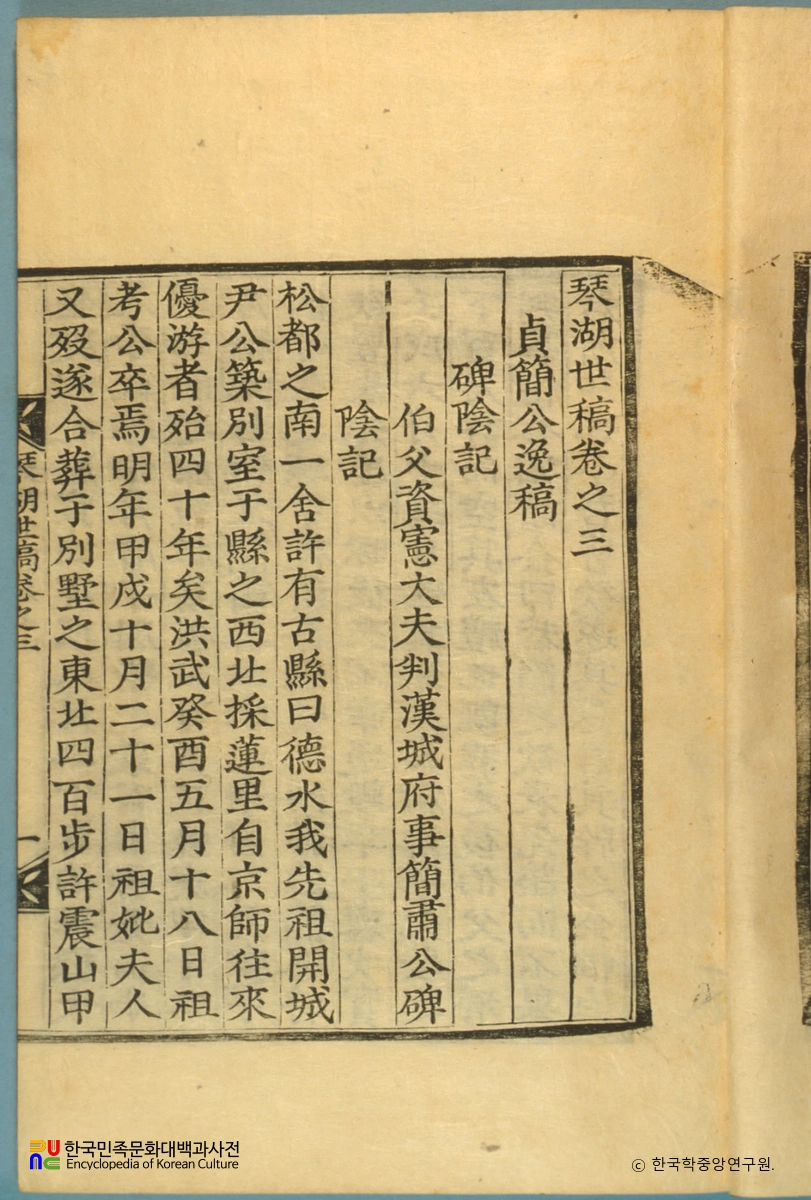 琴湖世稿卷之三
貞簡公逸稿
碑陰記
伯父資憲大夫判漢城府事簡肅公碑
陰記
松都之南一舍許有古縣曰德水我先祖開城
尹公築別室于縣之西北採蓮里自京師往來
優游者殆四十年矣洪武癸酉五月十八日祖
考公卒焉明年甲戌十月二十一日祖妣夫人
又歿遂合葬于別墅之東北四百步許震山甲
琴湖世稿卷之三
一
한국민족문화대백과사전
Encyclopedia of Korean Culture
ⓒ 한국학중앙연구원.